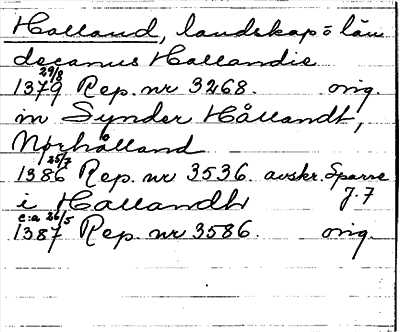 Halland, landskap o län
decanus Hallandie
29/8
1379 Rep. nr 3268. orig.
in Synder Hållandt,
Nørhålland
25/7
1386 Rep. nr 3536. avskr. Sparre
i Hallandh J. 7
c:a 26/5
1387 Rep. nr 3586. orig.